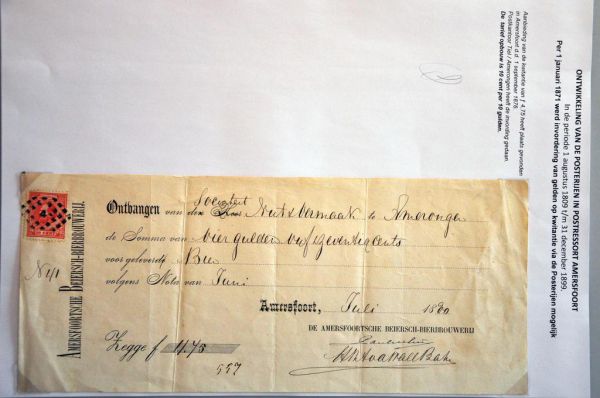 ONTWIKKELING VAN DE POSTERIJEN IN POSTRESSORT AMERSFOORT
In de periode 1 augustus 1809 t/m 31 december 1899.
Per 1 januari 1871 werd invordering van gelden op kwitantie via de Posterijen mogelijk
Aanbieding van de kwitantie van ƒ 4,75 heeft plaats gevonden
in Amersfoort d.d. 1 september 1878.
Postkantoor Tiel / Amerongen heeft de invordering gedaan.
De tarief opbouw is 10 cent per 10 gulden.
AMERSFOORTSCHE BEIERSCH-BIERBROUWERIJ.
Societeit
Ontvangen van den Heer Nut & Vermaak te Amerongen
de Somma van vier gulden vijf & zeventig cents
voor geleverd Bier
volgens Nota van Juni
Amersfoort, Juli 1880
DE AMERSFOORTSCHE BEIERSCH-BIERBROUWERIJ
Zegge f 4.75
557